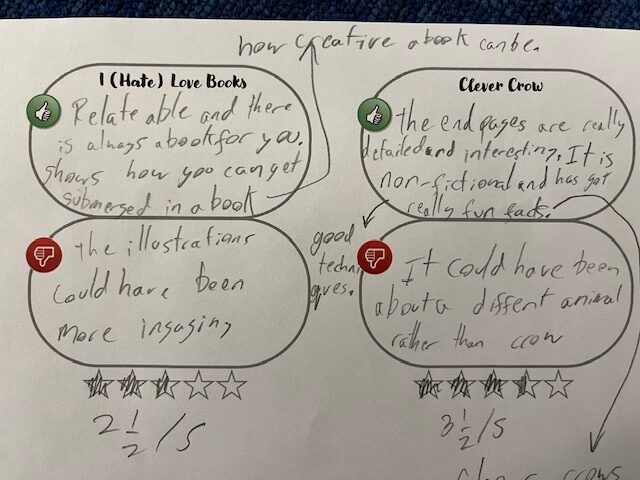 how creative a book can be.
I (Hate) Love Books
Relate able and there
is always a book for you.
shows how you can get
submersed in a book
the illustrations
could have been
more ingaging
2 1/2 /5
Clever Crow
the end pages are really
detailed and interesting. It is
non-fictional and has got
really fun facts.
good
techni
ques.
It could have been
about a diffent animal
rather than crow
3 1/2 /5
crows